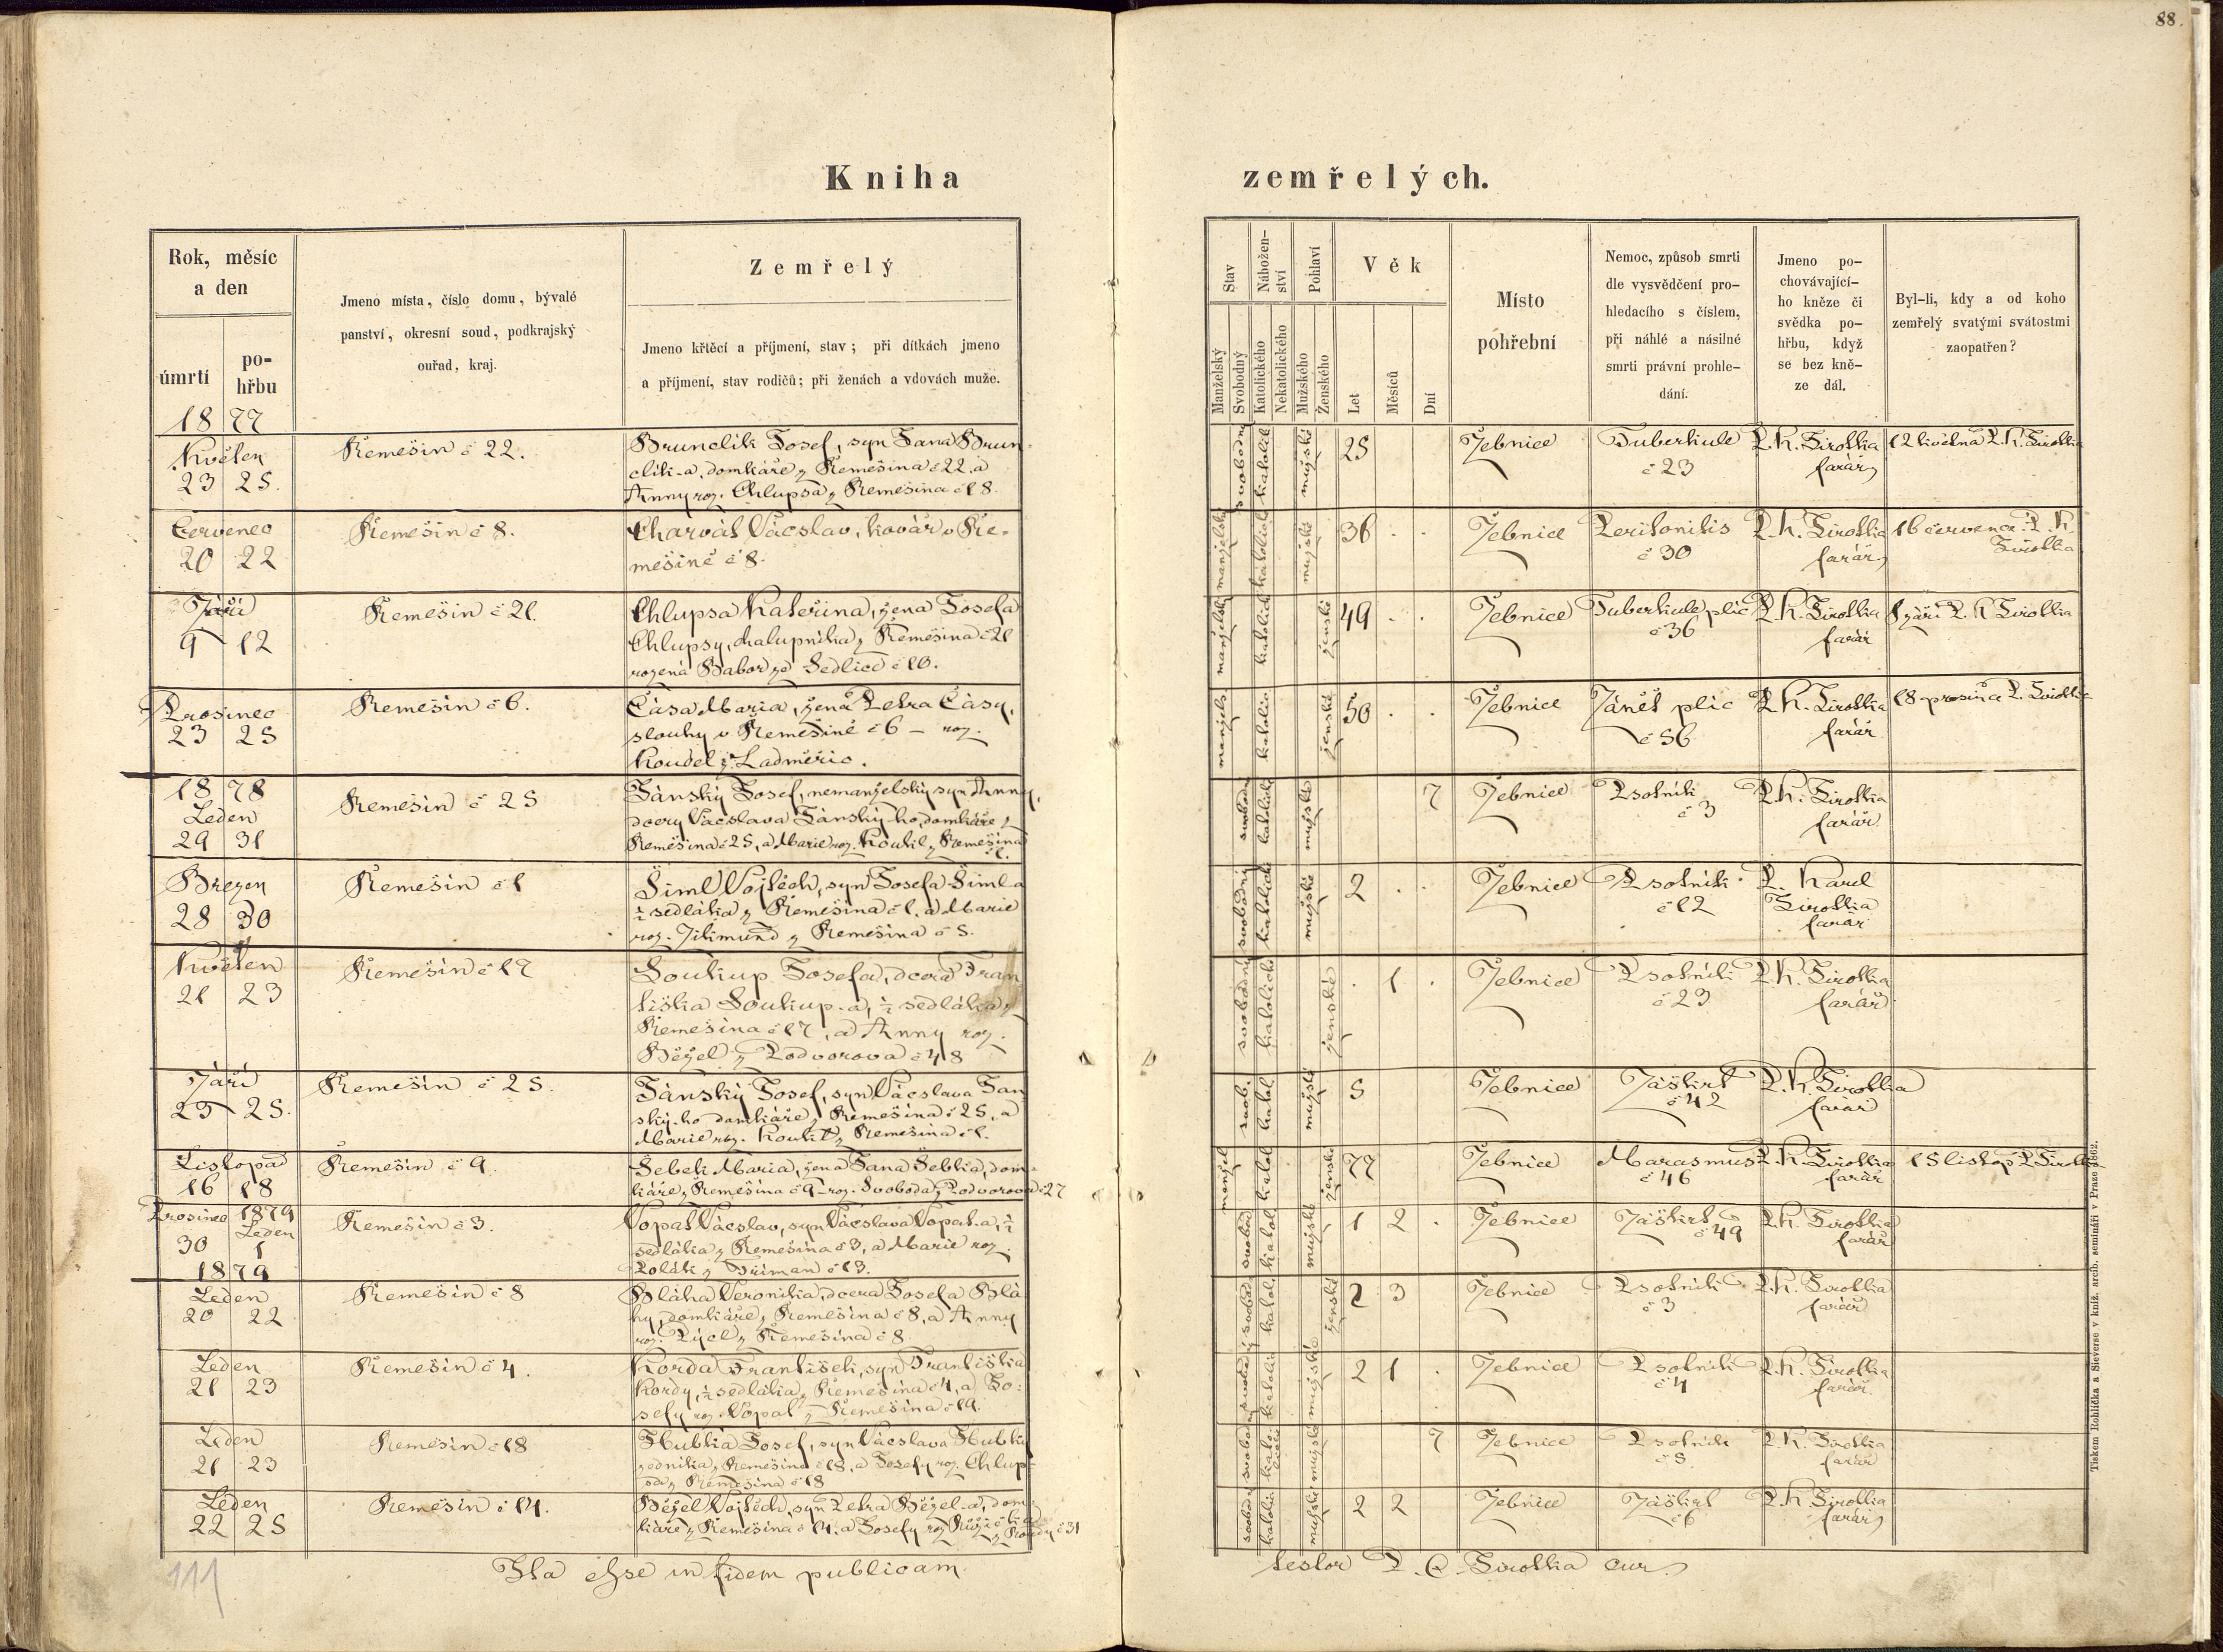 88.
Kniha zemřelých.
Rok, měsíc
a den
úmrtí
po-
hřbu
Jmeno místa, číslo domu, bývalé
panství, okresní soud, podkrajský
ouřad, kraj.
Zemřelý
Jmeno křtěcí a příjmení, stav; při dítkách jmeno
a příjmení, stav rodičů; při ženách a vdovách muže.
Stav
Manželský
Svobodný
Nábožen-
ství
Katolického
Nekatolického
Pohlaví
Mužského
Ženského
Věk
Let
Měsíců
Dní
Místo
pohřební
Nemoc, způsob smrti
dle vysvědčení pro-
hledacího s číslem,
při náhlé a násilné
smrti právní prohle-
dání.
Jmeno po-
chovávající-
ho kněze či
svědka po-
hřbu, když
se bez kně-
ze dál.
Byl-li, kdy a od koho
zemřelý svatými svátostmi
zaopatřen?
1877
Květen
23 25.
Řemešín č 22.
Brunclík Josef, syn Jana Brun
clík-a, domkáře z Řemešína č 22 a
Anny roz. Chlupsa z Řemešína č 18.
svobodný katolík mužské 25 Žebnice
Tuberkule
č 23
P. K. Sirotka
farář
12 května P. K. Sirotka
Červenec
20 22
Řemešín č 8.
Charvát Vácslav, kovář v Ře-
mešíně č 8.
manželský katolické mužské 36 Žebnice
Peritonitis
č 30
P. K. Sirotka
farář
16 července P. K.
Sirotka
Září
9 12
Řemešín č 21.
Chlupsa Kateřina, žena Josefa
Chlupsy, chalupníka z Řemešína č 21
rozená Babor ze Sedlice č 10.
manželský katolické ženské 49 Žebnice
Tuberkule plic
č 36
P. K. Sirotka
farář
8 září P. K Sirotka
Prosinec
23 25
Řemešín č 6.
Čása Maria, žena Petra Čásy,
slouhy v Řemešíně č 6 – roz.
Koudel z Ladměřic.
manžels. katolic ženské 50 Žebnice
Zánět plic
č 56
P. K. Sirotka
farář
18 prosince P. Sirotka
1878
Leden
29 31
Řemešín č 25
Jánský Josef, nemanželský syn Anny,
dcery Vácslava Jánský-ho, domkáře z
Řemešína č 25, a Marie roz. Koukl z Řemešína
č 1.
svobodn katolické mužské 7 Žebnice
Psotník
č 3
P. K. Sirotka
farář.
Březen
28 30
Řemešín č 1
Šiml Vojtěch, syn Josefa Šiml-a
½ sedláka z Řemešína č 1. a Marie
roz. Zikmund z Řemešína č 5.
svobodný katolické mužské 2 Žebnice
Psotník
č 12
P. Karel
Sirotka
farář
Květen
21 23
Řemešín č 17
Soukup Josefa, dcera Fran
tiška Soukup-a, ½ sedláka z
Řemešína č 17, a Anny roz.
Běžel z Podvorova č 48
svobodný katolické ženské 1 Žebnice
Psotník
č 23
P. K. Sirotka
farář
Září
23 25.
Řemešín č 25.
Jánský Josef, syn Vácslava Ján
ský-ho domkáře z Řemešína č 25, a
Marie roz. Koukl z Řemešína č 1.
svob. katol mužské 5 Žebnice
Záškrt
č 42
P. K. Sirotka
farář
Listopad
16 18
Řemešín č 9.
Šebek Maria, žena Jana Šebka, dom-
káře z Řemešína č 9 – roz. Svoboda z Podvorova č 27
manžel katol ženské 77 Žebnice
Marasmus
č 46
P. K. Sirotka
farář
15 listop P Sirotka
Prosinec 1879
Leden
30 1
Řemešín č 3.
Vopat Vácslav, syn Vácslava Vopat-a, ½
sedláka z Řemešína č 3, a Marie roz.
Polák z Dřiman č 13.
svobod katol mužské 1 2 Žebnice
Záškrt
č 49
P. K. Sirotka
farář
1879
Leden
20 22
Řemešín č 8
Bláha Veronika, dcera Josefa Blá
hy, domkáře z Řemešína č 8, a Anny
roz. z Řemešína č 8.
svobod katol. ženské 2 3 Žebnice
Psotník
č 3
P. K. Sirotka
farář
Leden
21 23
Řemešín č 4.
Korda František, syn Františka
Kordy, ½ sedláka z Řemešína č 4, a Jo-
sefy roz. Vopat z Řemešína č 19.
svobodný katolic mužské 2 1 Žebnice
Psotník
č 4
P. K. Sirotka
farář.
Leden
21 23
Řemešín č 18
Hubka Josef, syn Vácslava Hubky
zedníka z Řemešína č 18, a Josefy roz. Chlup-
sa z Řemešína č 18
svobodn kato- mužské 7 Žebnice
Psotník
č 5
P. K. Sirotka
farář
Leden
22 25
Řemešín č 14.
Běžel Vojtěch, syn Petra Běžel-a, dom-
káře z Řemešína č 14. a Josefy roz. Růžička
z č 31
svobodn katolic mužské 2 2 Žebnice
Záškrt
č 6
P. K. Sirotka
farář
111
Ita esse in fidem publicam
testor P. C. Sirotka cur.
Tiskem Rohlíčka a Sieverse v kníž. arcib. semináři v Praze 1862.